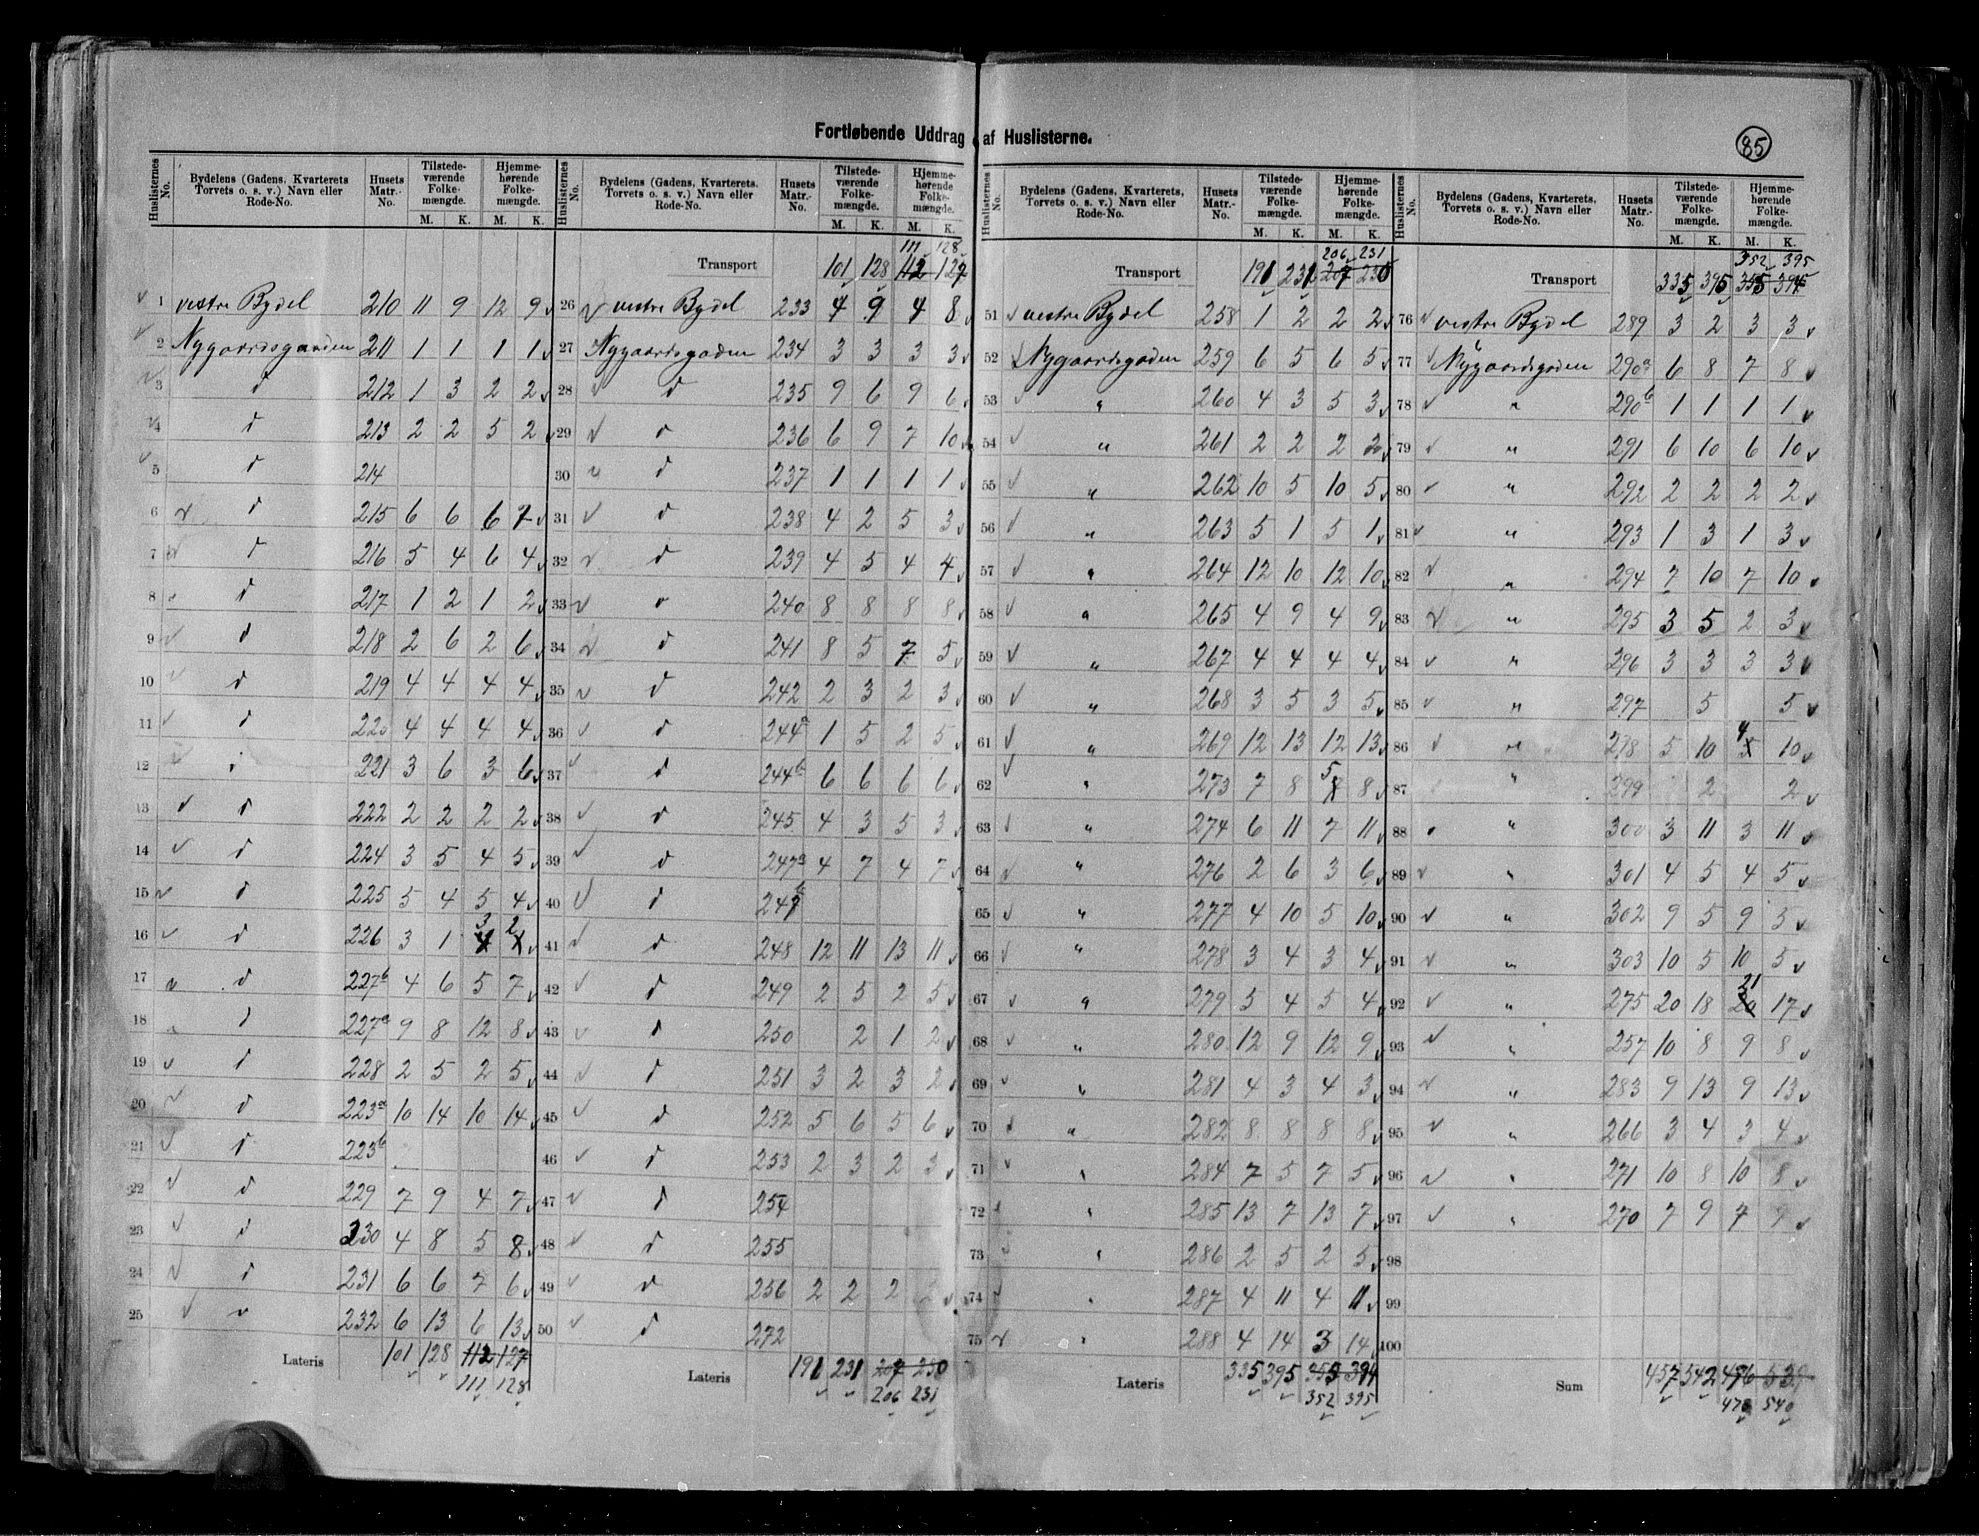 Fortløbende Uddrag af Huslisterne.
85
Huslisternes No. Bydelens (Gadens, Kvarterets, Torvets o. s. v.) Navn eller Rode-No. Husets Matr.-No. Tilstedeværende Folkemængde. M. K. Hjemmehørende Folkemængde. M. K.
1 vestre Bydel 210 11 9 12 9
2 Nygaardsgaden 211 1 1 1 1
3 d 212 1 3 2 2
4 d 213 2 2 5 2
5 d 214
6 d 215 6 6 6 7
7 d 216 5 4 6 4
8 d 217 1 2 1 2
9 d 218 2 6 2 6
10 d 219 4 4 4 4
11 d 220 4 4 4 4
12 d 221 3 6 3 6
13 d 222 2 2 2 2
14 d 224 3 5 4 5
15 d 225 5 4 5 4
16 d 226 3 1 3 2
17 d 227b 4 6 5 7
18 d 227a 9 8 12 8
19 d 228 2 5 2 5
20 d 223a 10 14 10 14
21 d 223b
22 d 229 7 9 4 7
23 d 230 4 8 5 8
24 d 231 6 6 7 6
25 d 232 6 13 6 13
Lateris 101 128 112 127
111 128
Huslisternes No. Bydelens (Gadens, Kvarterets, Torvets o. s. v.) Navn eller Rode-No. Husets Matr.-No. Tilstedeværende Folkemængde. M. K. Hjemmehørende Folkemængde. M. K.
111 128
Transport 101 128 112 127
26 vestre Bydel 233 4 9 4 8
27 Nygaardsgaden 234 3 3 3 3
28 d 235 9 6 9 6
29 d 236 6 9 7 10
30 d 237 1 1 1 1
31 d 238 4 2 5 3
32 d 239 4 5 4 4
33 d 240 8 8 8 8
34 d 241 8 5 7 5
35 d 242 2 3 2 3
36 d 244a 1 5 2 5
37 d 244b 6 6 6 6
38 d 245 4 3 5 3
39 d 247a 4 7 4 7
40 d 247b
41 d 248 12 11 13 11
42 d 249 2 5 2 5
43 d 250 2 1 2
44 d 251 3 2 3 2
45 d 252 5 6 5 6
46 d 253 2 3 2 3
47 d 254
48 d 255
49 d 256 2 2 2
50 d 272
Lateris 191 231 207 230
206 231
Huslisternes No. Bydelens (Gadens, Kvarterets, Torvets o. s. v.) Navn eller Rode-No. Husets Matr.-No. Tilstedeværende Folkemængde. M. K. Hjemmehørende Folkemængde. M. K.
206 231
Transport 191 231 207 230
51 vestre Bydel 258 1 2 2 2
52 Nygaardsgaden 259 6 5 6 5
53 " 260 4 3 5 3
54 " 261 2 2 2 2
55 " 262 10 5 10 5
56 " 263 5 1 5 1
57 " 264 12 10 12 10
58 " 265 4 9 4 9
59 " 267 4 4 4 4
60 " 268 3 5 3 5
61 " 269 12 13 12 13
62 " 273 7 8 5 8
63 " 274 6 11 7 11
64 " 276 2 6 3 6
65 " 277 4 10 5 10
66 " 278 3 4 3 4
67 " 279 5 4 5 4
68 " 280 12 9 12 9
69 " 281 4 3 4 3
70 " 282 8 8 8 8
71 " 284 7 5 7 5
72 " 285 13 7 13 7
73 " 286 2 5 2 5
74 " 287 4 11 4 11
75 " 288 4 14 3 14
Lateris 335 395 355 394
352 395
Huslisternes No. Bydelens (Gadens, Kvarterets, Torvets o. s. v.) Navn eller Rode-No. Husets Matr.-No. Tilstedeværende Folkemængde. M. K. Hjemmehørende Folkemængde. M. K.
352 395
Transport 335 395 355 394
76 vestre Bydel 289 3 2 3 3
77 Nygaardsgaden 290a 6 8 7 8
78 " 290b 1 1 1 1
79 " 291 6 10 6 10
80 " 292 2 2 2 2
81 " 293 1 3 1 3
82 " 294 7 10 7 10
83 " 295 3 5 2 3
84 " 296 3 3 3 3
85 " 297 5 5
86 " 298 5 10 4 10
87 " 299 2 2
88 " 300 3 11 3 11
89 " 301 4 5 4 5
90 " 302 9 5 9 5
91 " 303 10 5 10 5
92 " 275 20 18 21 17
93 " 257 10 8 9 8
94 " 283 9 13 9 13
95 " 266 3 4 3 4
96 " 271 10 8 10 8
97 " 270 7 9 7 9
98
99
100
Sum 457 542 476 539
478 540